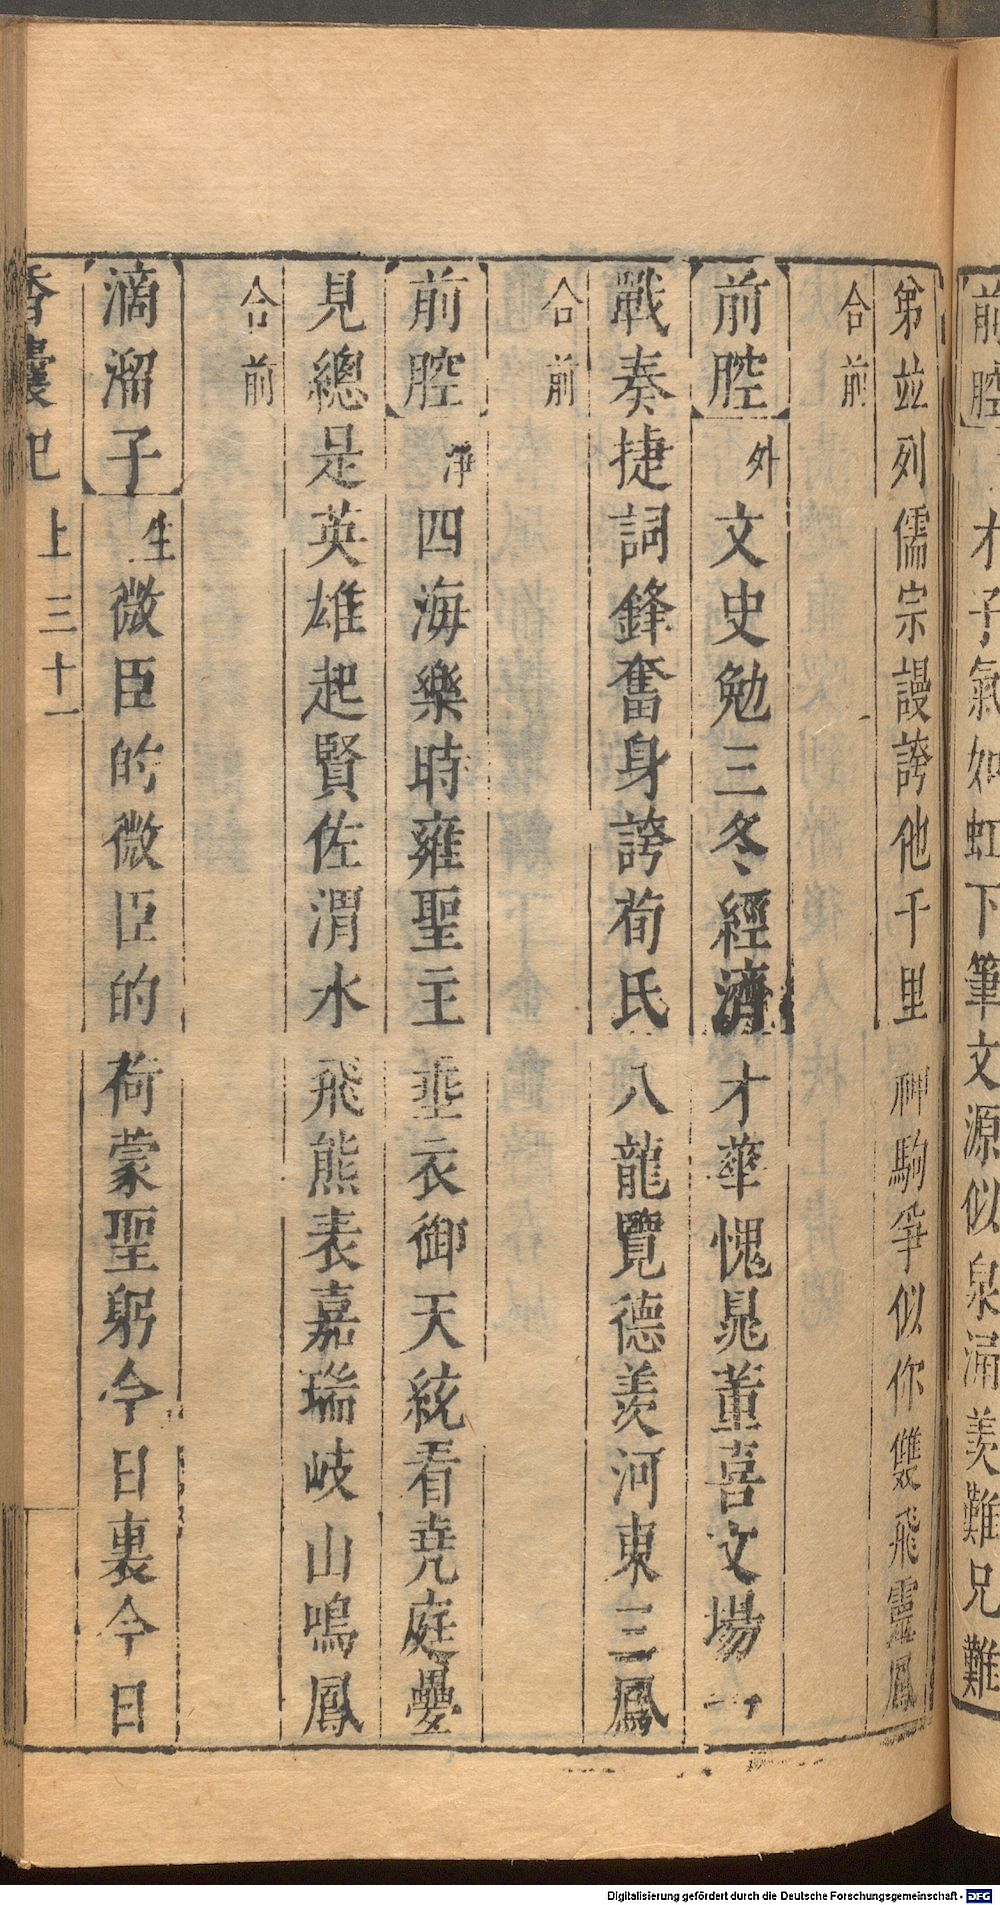 前腔 才子氣如虹下筆文源似泉湧羨難兄難
弟並列儒宗謾誇他千里神駒爭似你雙飛靈鳳
合前
前腔 外 文史勉三冬經濟才華愧晁董喜文場
戰奏捷詞鋒奮身誇荀氏八龍覽德羨河東三鳳
合前
前腔 淨 四海樂時雍聖主垂衣御天統看堯庭疊
見總是英雄起賢佐渭水飛熊表嘉瑞岐山鳴鳳
合前
滴溜子 生 微臣的微臣的荷蒙聖躬今日裏今日
香囊記 上 三十一
Digitalisierung gefördert durch die Deutsche Forschungsgemeinschaft - DFG